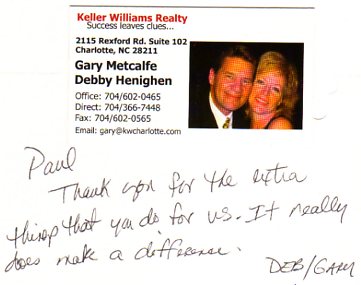 Keller Williams Realty
Success leaves clues...
2115 Rexford Rd. Suite 102
Charlotte, NC 28211
Gary Metcalfe
Debby Henighen
Office: 704/602-0465
Direct: 704/366-7448
Fax: 704/602-0565
Email: gary@kwcharlotte.com
Paul
Thank you for the extra
things that you do for us. It really
does make a difference.
DEB/GARY